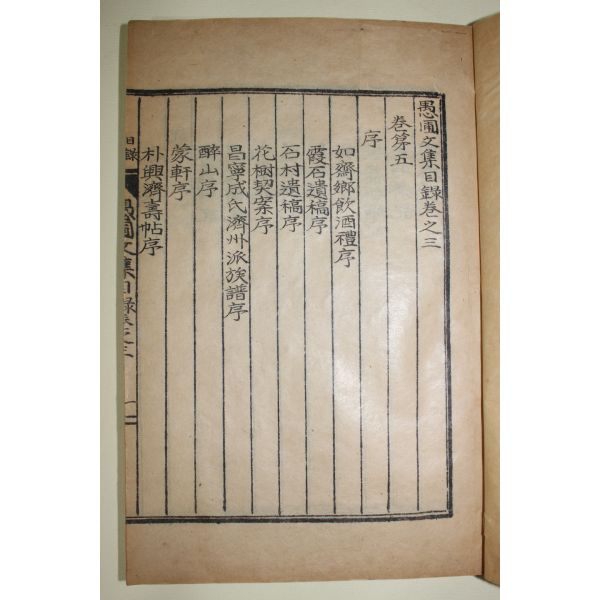 愚圃文集目錄卷之三
卷第五
序
如齋鄉飮酒禮序
霞石遺稿序
石村遺稿序
花樹契案序
昌寧成氏濟州派族譜序
醉山序
蒙軒序
朴興濟壽帖序
目錄
愚圃文集目錄卷之三